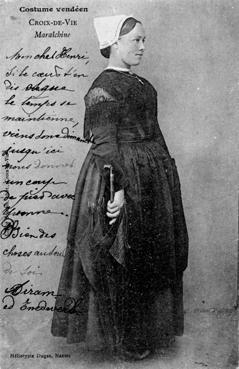 Costume vendéen
CROIX-DE-VIE
Maraîchine
Mon chet Henri,
Si le cœur t'en
dis
le temps se
maintienne,
viens donc dimanche
jusqu'ici
nous donner
un coup
de pied avec
Yvonne.
Bien des
choses autour
de toi
Héliotypie Dugas, Nantes